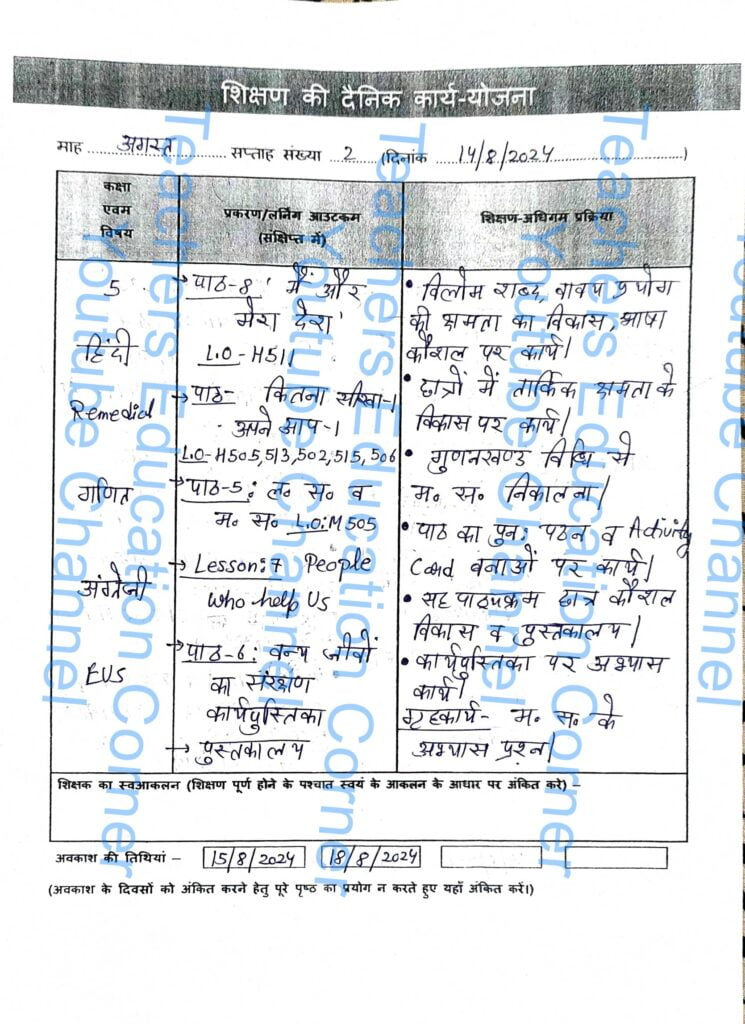 शिक्षण की दैनिक कार्य-योजना
माह अगस्त सप्ताह संख्या 2 (दिनांक 14/8/2024)
कक्षा
एवम
विषय
प्रकरण/लर्निंग आउटकम
(संक्षिप्त में)
शिक्षण-अधिगम प्रक्रिया
5
हिंदी
Remedial
गणित
अंग्रेजी
EVS
→ पाठ-8 'मैं और
मेरा देश'
L.O-H511
→ पाठ- कितना सीखा-1
अपने आप-1
L.O-H505,513,502,515,506
→ पाठ-5: ल. स. व
म. स. L.O:M505
→ Lesson:7 People
who help Us
→ पाठ-6: वन्य जीवों
का संरक्षण
कार्यपुस्तिका
→ पुस्तकालय
• विलोम शब्द, वाक्य प्रयोग
की क्षमता का विकास, भाषा
कौशल पर कार्य।
• छात्रों में तार्किक क्षमता के
विकास पर कार्य।
• गुणनखण्ड विधि से
म. स. निकालना।
• पाठ का पुन: पठन व Activity
Card बनाओं पर कार्य।
• सह पाठ्यक्रम छात्र कौशल
विकास व पुस्तकालय।
• कार्यपुस्तिका पर अभ्यास
कार्य।
गृहकार्य- म. स. के
अभ्यास प्रश्न।
शिक्षक का स्वआकलन (शिक्षण पूर्ण होने के पश्चात स्वयं के आकलन के आधार पर अंकित करे) –
अवकाश की तिथियां – 15/8/2024 18/8/2024
(अवकाश के दिवसों को अंकित करने हेतु पूरे पृष्ठ का प्रयोग न करते हुए यहाँ अंकित करें।)
Teachers Education Corner
Youtube Channel
Teachers Education Corner
Youtube Channel
Teachers Education Corner
Youtube Channel